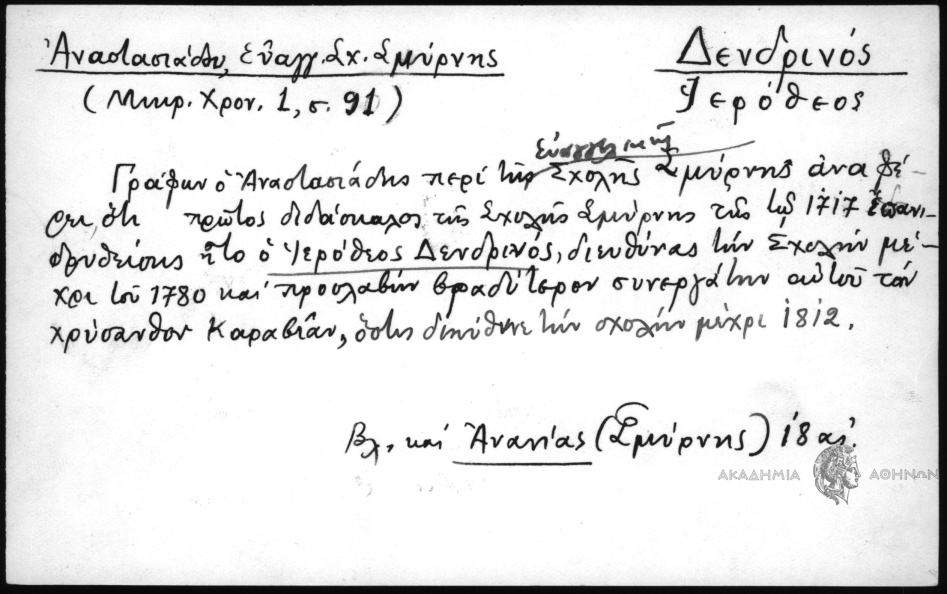 Ἀναστασιάδη, Εὐαγγ. Σχ. Σμύρνης
(Μικρ. Χρον. 1, σ. 91)
Δενδρινός
Ἱερόθεος
Γράφων ὁ Ἀναστασιάδης περί τῆς Εὐαγγελικῆς Σχολῆς Σμύρνης ἀναφέ-
ρει, ὅτι πρῶτος διδάσκαλος τῆς Σχολῆς Σμύρνης τῆς τῷ 1717
ἦτο ὁ Ἱερόθεος Δενδρινός, διευθύνας τήν Σχολήν μέ-
χρι τοῦ 1780 καί προσλαβών βραδύτερον συνεργάτην αὐτοῦ τόν
Χρύσανθον Καραβίαν, ὅστις διηύθυνε τήν σχολήν μέχρι 1812.
Βλ. καί Ἀνανίας (Σμύρνης) 18 αἰ.
ΑΚΑΔΗΜΙΑ ΑΘΗΝΩΝ